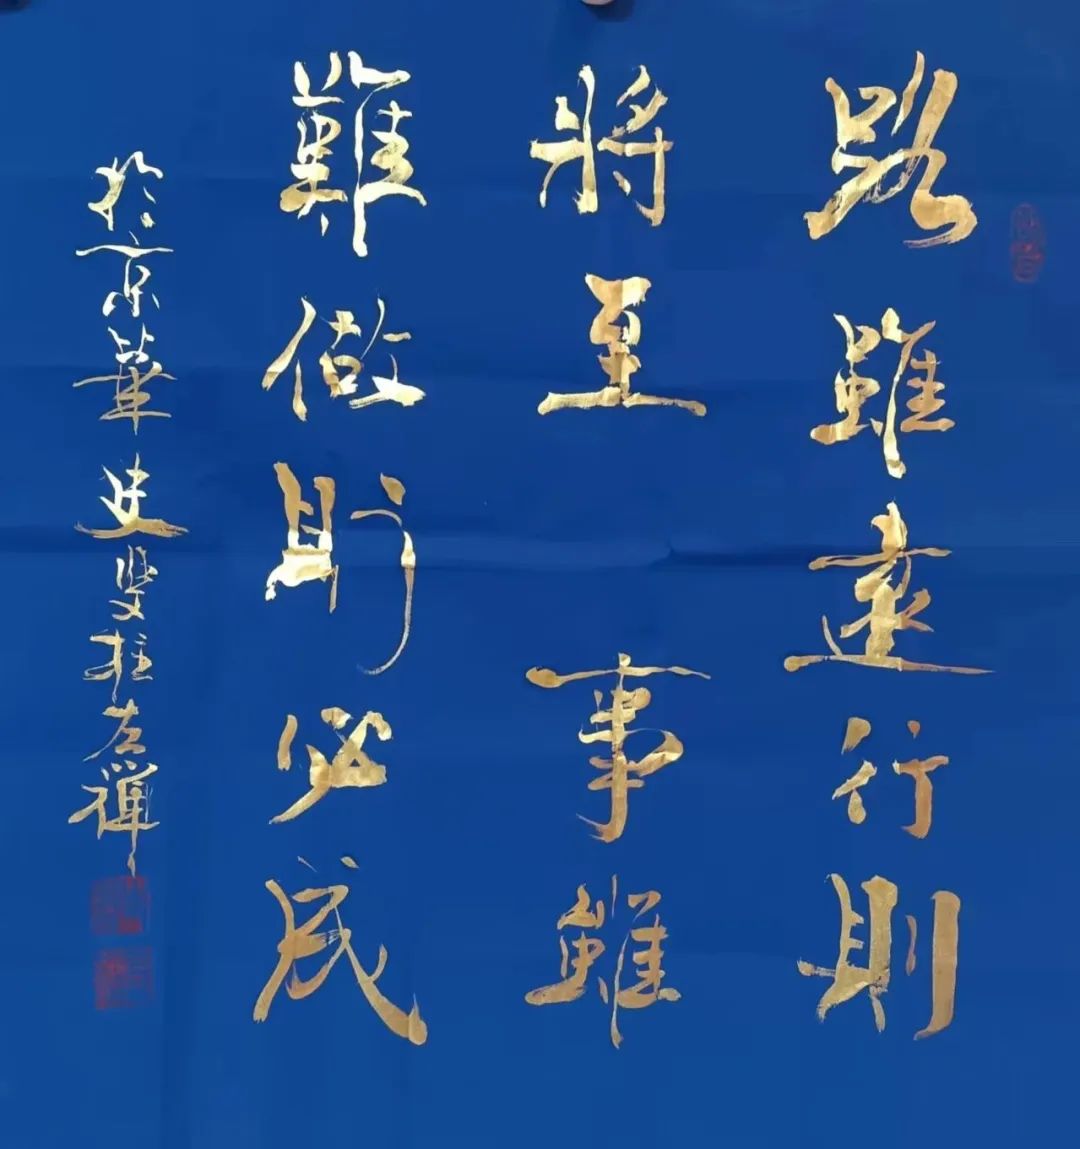 路雖遠行則
將至事雖
難做則必成
於京華史雙柱左禪